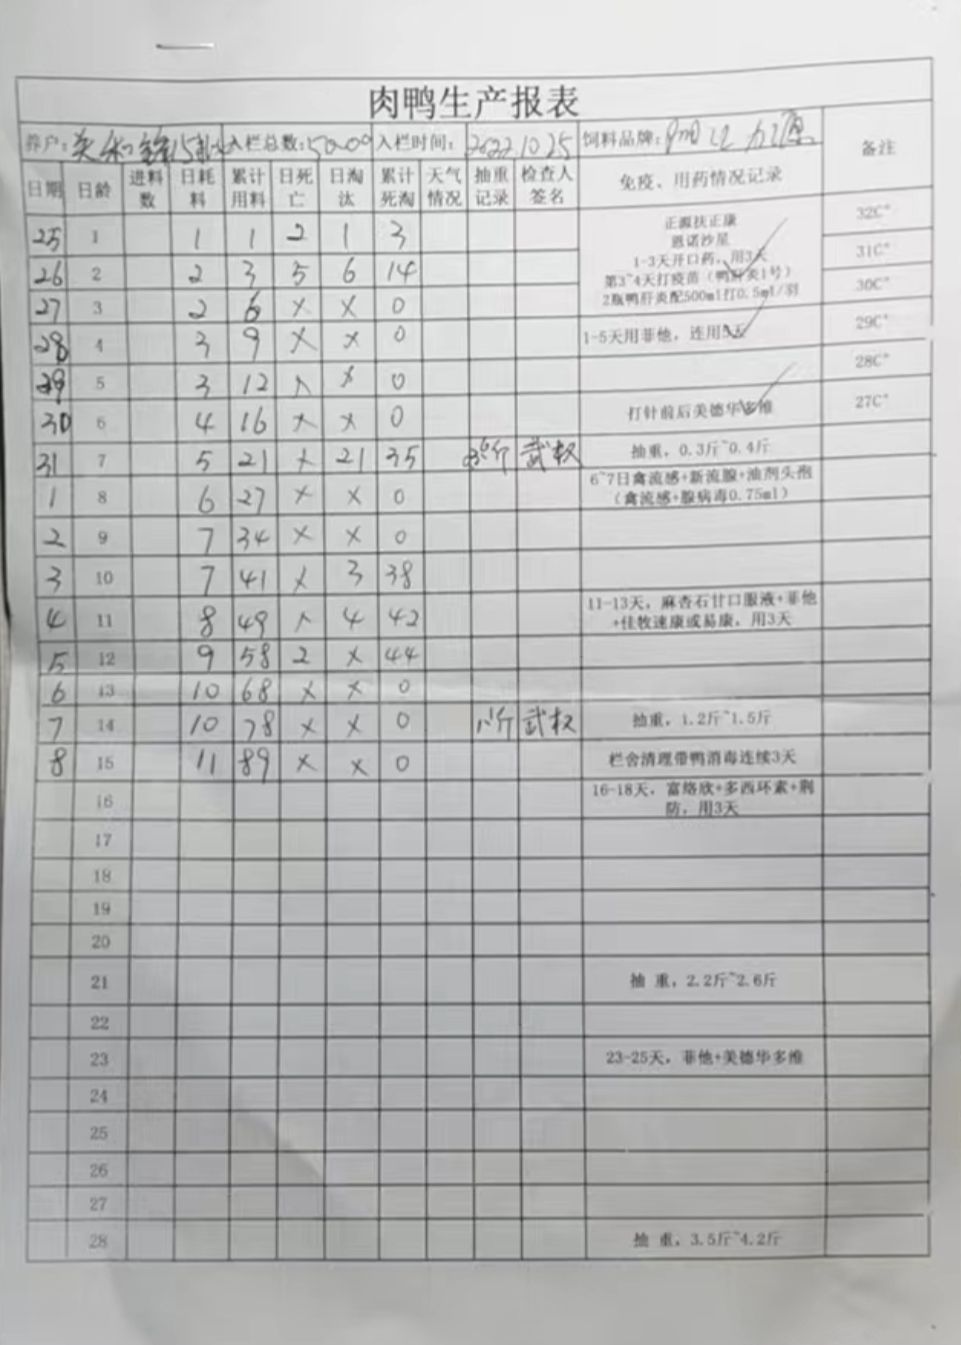 肉鸭生产报表
养户: 入栏总数:5000 入栏时间: 2022.10.25 饲料品牌: 备注
日期 日龄 进料数 日耗料 累计用料 日死亡 日淘汰 累计死淘 天气情况 抽重记录 检查人签名 免疫、用药情况记录
25 1 1 1 2 1 3 正源扶正康 32C°
恩诺沙星
26 2 2 3 5 6 14 1-3天开口药，用3天 31C°
第3~4天打疫苗（鸭肝炎1号）
27 3 2 6 × × 0 2瓶鸭肝炎配500ml打0.5ml/羽 30C°
28 4 3 9 × × 0 1-5天用菲他，连用5天 29C°
29 5 3 12 × × 0 28C°
30 6 4 16 × × 0 打针前后美德华多维 27C°
31 7 5 21 × 21 35 武权 抽重，0.3斤~0.4斤
1 8 6 27 × × 0 6~7日禽流感+新流腺+油剂头孢
（禽流感+腺病毒0.75ml）
2 9 7 34 × × 0
3 10 7 41 × 3 38
4 11 8 49 × 4 42 11-13天，麻杏石甘口服液+菲他
+佳牧速康或易康，用3天
5 12 9 58 2 × 44
6 13 10 68 × × 0
7 14 10 78 × × 0 武权 抽重，1.2斤~1.5斤
8 15 11 89 × × 0 栏舍清理带鸭消毒连续3天
16 16-18天，富络欣+多西环素+荆
防，用3天
17
18
19
20
21 抽 重，2.2斤~2.6斤
22
23 23-25天，菲他+美德华多维
24
25
26
27
28 抽 重，3.5斤~4.2斤